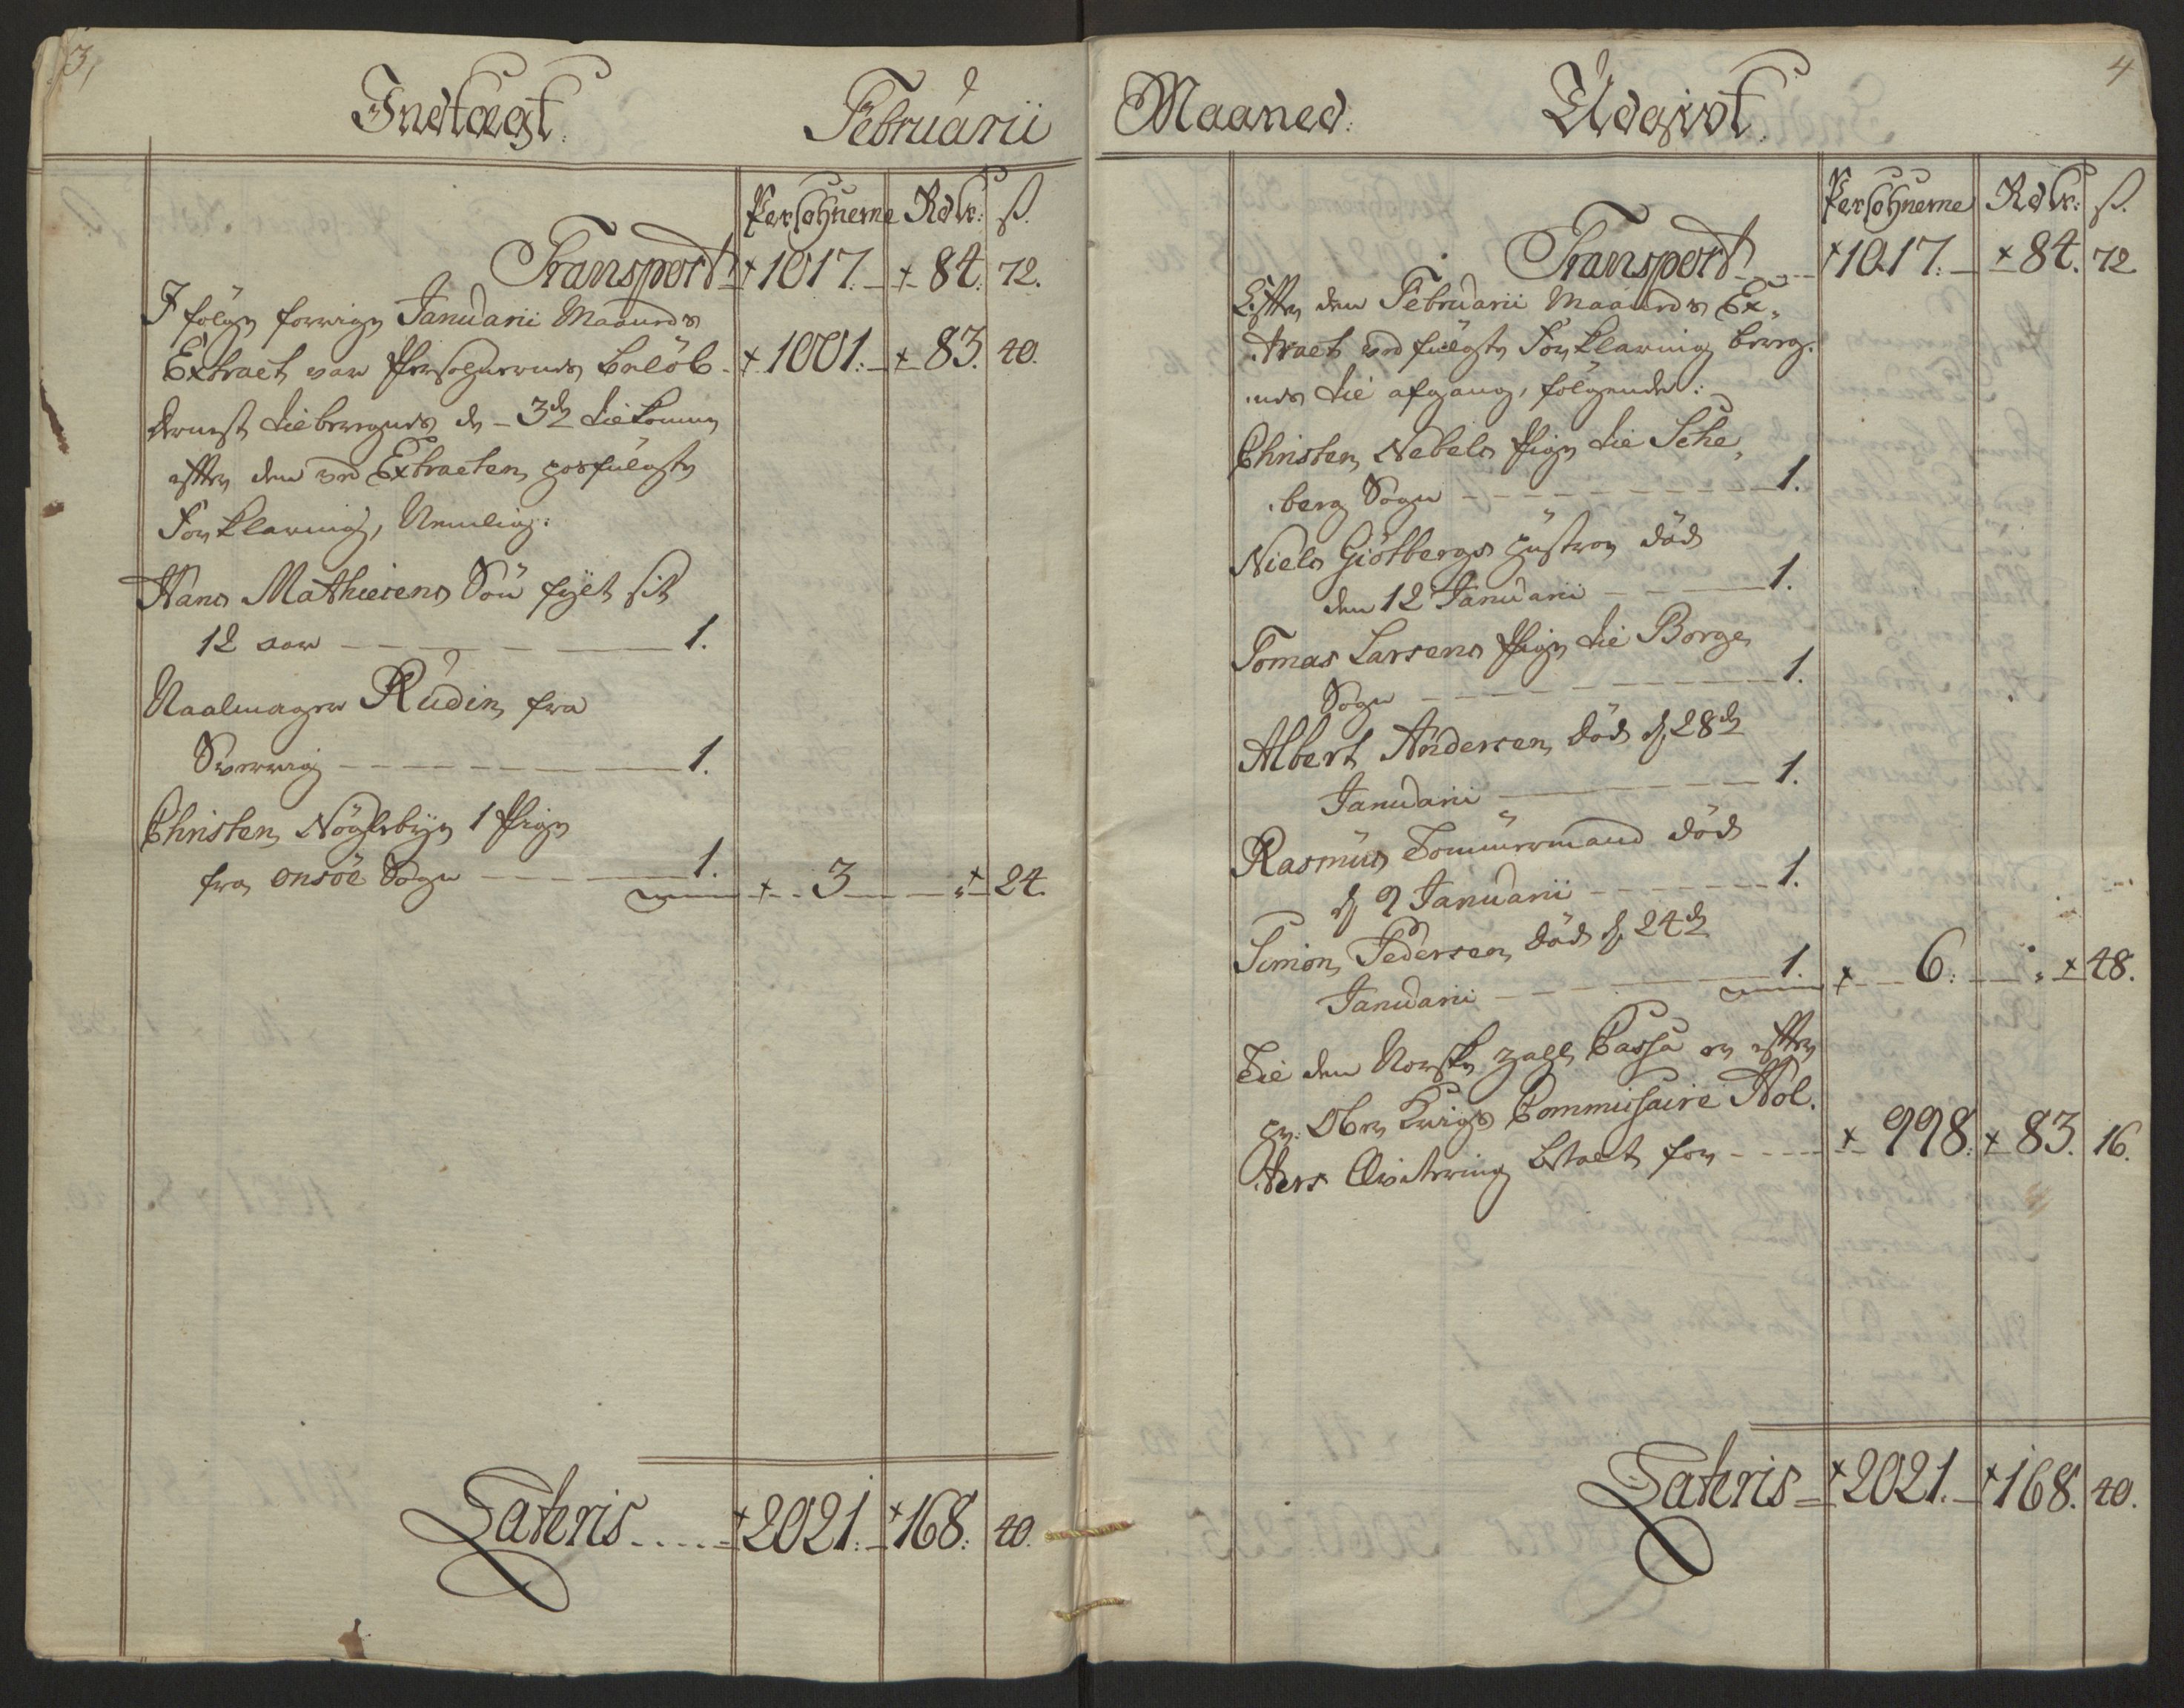 3,
Indtægt. Februarii
Persohnerne Rdlr: ß.
Transport 1017. 84. 72.
I følge forrige Januarii Maaneds
Extract var Persohnernes beløb 1001. 83. 40.
dernest tilberegnes de 3de tilkomne
efter den ved Extracten hosfulgte
Forklaring, Nemlig:
Hans Mathiesens Søn fylt sit
12 aar 1.
Naalmager Rudin, fra
Sverrig 1.
Christen Nøglebye 1 Pige
fra Onsöe Sogn 1. 3 " 24.
Lateris 2021. 168. 40.
4
Maaned. Udgivt.
Persohnerne Rdlr: ß.
Transport 1017. 84. 72
Efter den Februarii Maaneds Ex-
tract ved fulgte Forklaring bereg-
nes til afgang, følgende:
Christen Nebels Pige til Sche-
berg Sogn 1.
Niels Giötbergs hustroe död
den 12 Januarii 1.
Tomas Larsens Pige til Borge
Sogn 1.
Albert Andersen, död d. 28de
Januarii 1.
Rasmus Tömmermand död
d. 9 Januarii 1.
Simon Pedersen, död d. 24de
Januarii 1. 6. " 48.
Til den Norske Zahl Cassa er efter
hr. Ober Krigs Commissaire Hol-
ters Qvittering betalt for 998. 83. 16.
Lateris 2021. 168. 40.